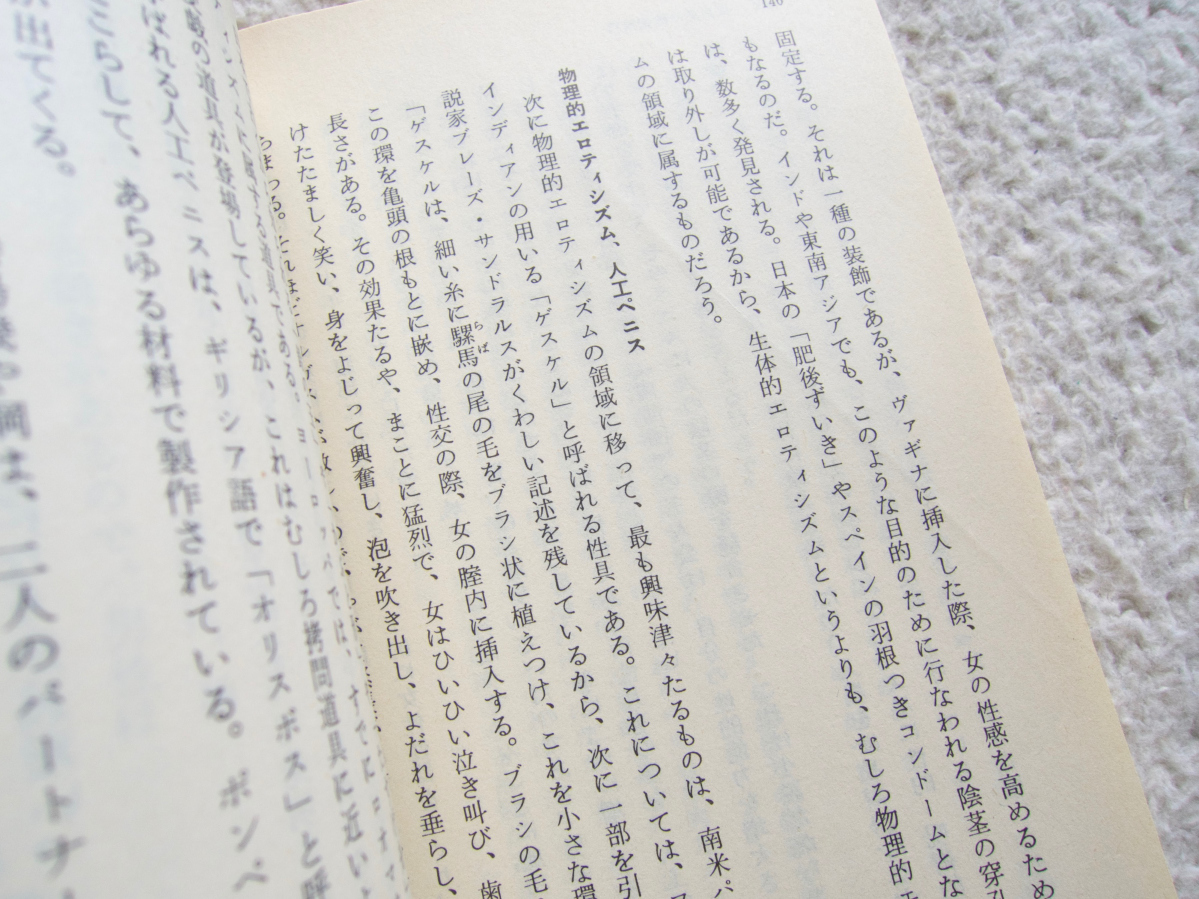 146
固定する。それは一種の装飾であるが、ヴァギナに挿入した際、女の性感を高めるため
もなるのだ。インドや東南アジアでも、このような目的のために行なわれる陰茎の穿孔
は、数多く発見される。日本の「肥後ずいき」やスペインの羽根つきコンドームとな
は取り外しが可能であるから、生体的エロティシズムというよりも、むしろ物理的エ
ムの領域に属するものだろう。
物理的エロティシズム、人工ペニス
次に物理的エロティシズムの領域に移って、最も興味津々たるものは、南米パ
インディアンの用いる「ゲスケル」と呼ばれる性具である。これについては、
説家ブレーズ・サンドラルスがくわしい記述を残しているから、次に一部を引
「ゲスケルは、細い糸に騾馬の尾の毛をブラシ状に植えつけ、これを小さな環
らば
この環を亀頭の根もとに嵌め、性交の際、女の膣内に挿入する。ブラシの毛
長さがある。その効果たるや、まことに猛烈で、女はひいひい泣き叫び、歯
けたたましく笑い、身をよじって興奮し、泡を吹き出し、よだれを垂らし、
する道具である。ヨーロッパでは、すでに
の道具が登場しているが、これはむしろ拷問道具に近い
ばれる人工ペニスは、ギリシア語で「オリスボス」と呼
らして、あらゆる材料で製作されている。ポンペ
出てくる。
は、二人のパートナー